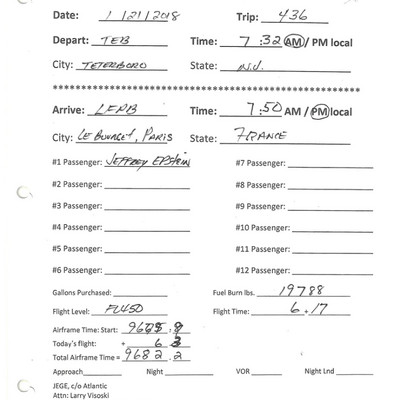 Date: 1/21/2018 Trip: 436
Depart: TEB Time: 7:32 AM / PM local
City: TETERBORO State: N.J.
************************************************
Arrive: LFPB Time: 7:50 AM / PM local
City: LE BOURGET, PARIS State: FRANCE
#1 Passenger: JEFFREY EPSTEIN #7 Passenger:
#2 Passenger: #8 Passenger:
#3 Passenger: #9 Passenger:
#4 Passenger: #10 Passenger:
#5 Passenger: #11 Passenger:
#6 Passenger: #12 Passenger:
Gallons Purchased: Fuel Burn lbs. 19788
Flight Level: FL450 Flight Time: 6+17
Airframe Time: Start:
Today's flight: + 6.3
Total Airframe Time = 9682.2
Approach Night VOR Night Lnd
JEGE, c/o Atlantic
Attn: Larry Visoski